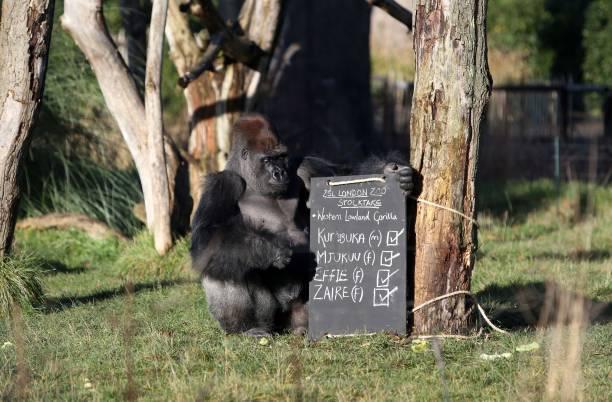 ZSL LONDON ZOO
STOCKTAKE
• Western Lowland Gorilla
KUMBUKA (m) ☑
MJUKUU (f) ☑
EFFIE (f) ☑
ZAIRE (f) ☑